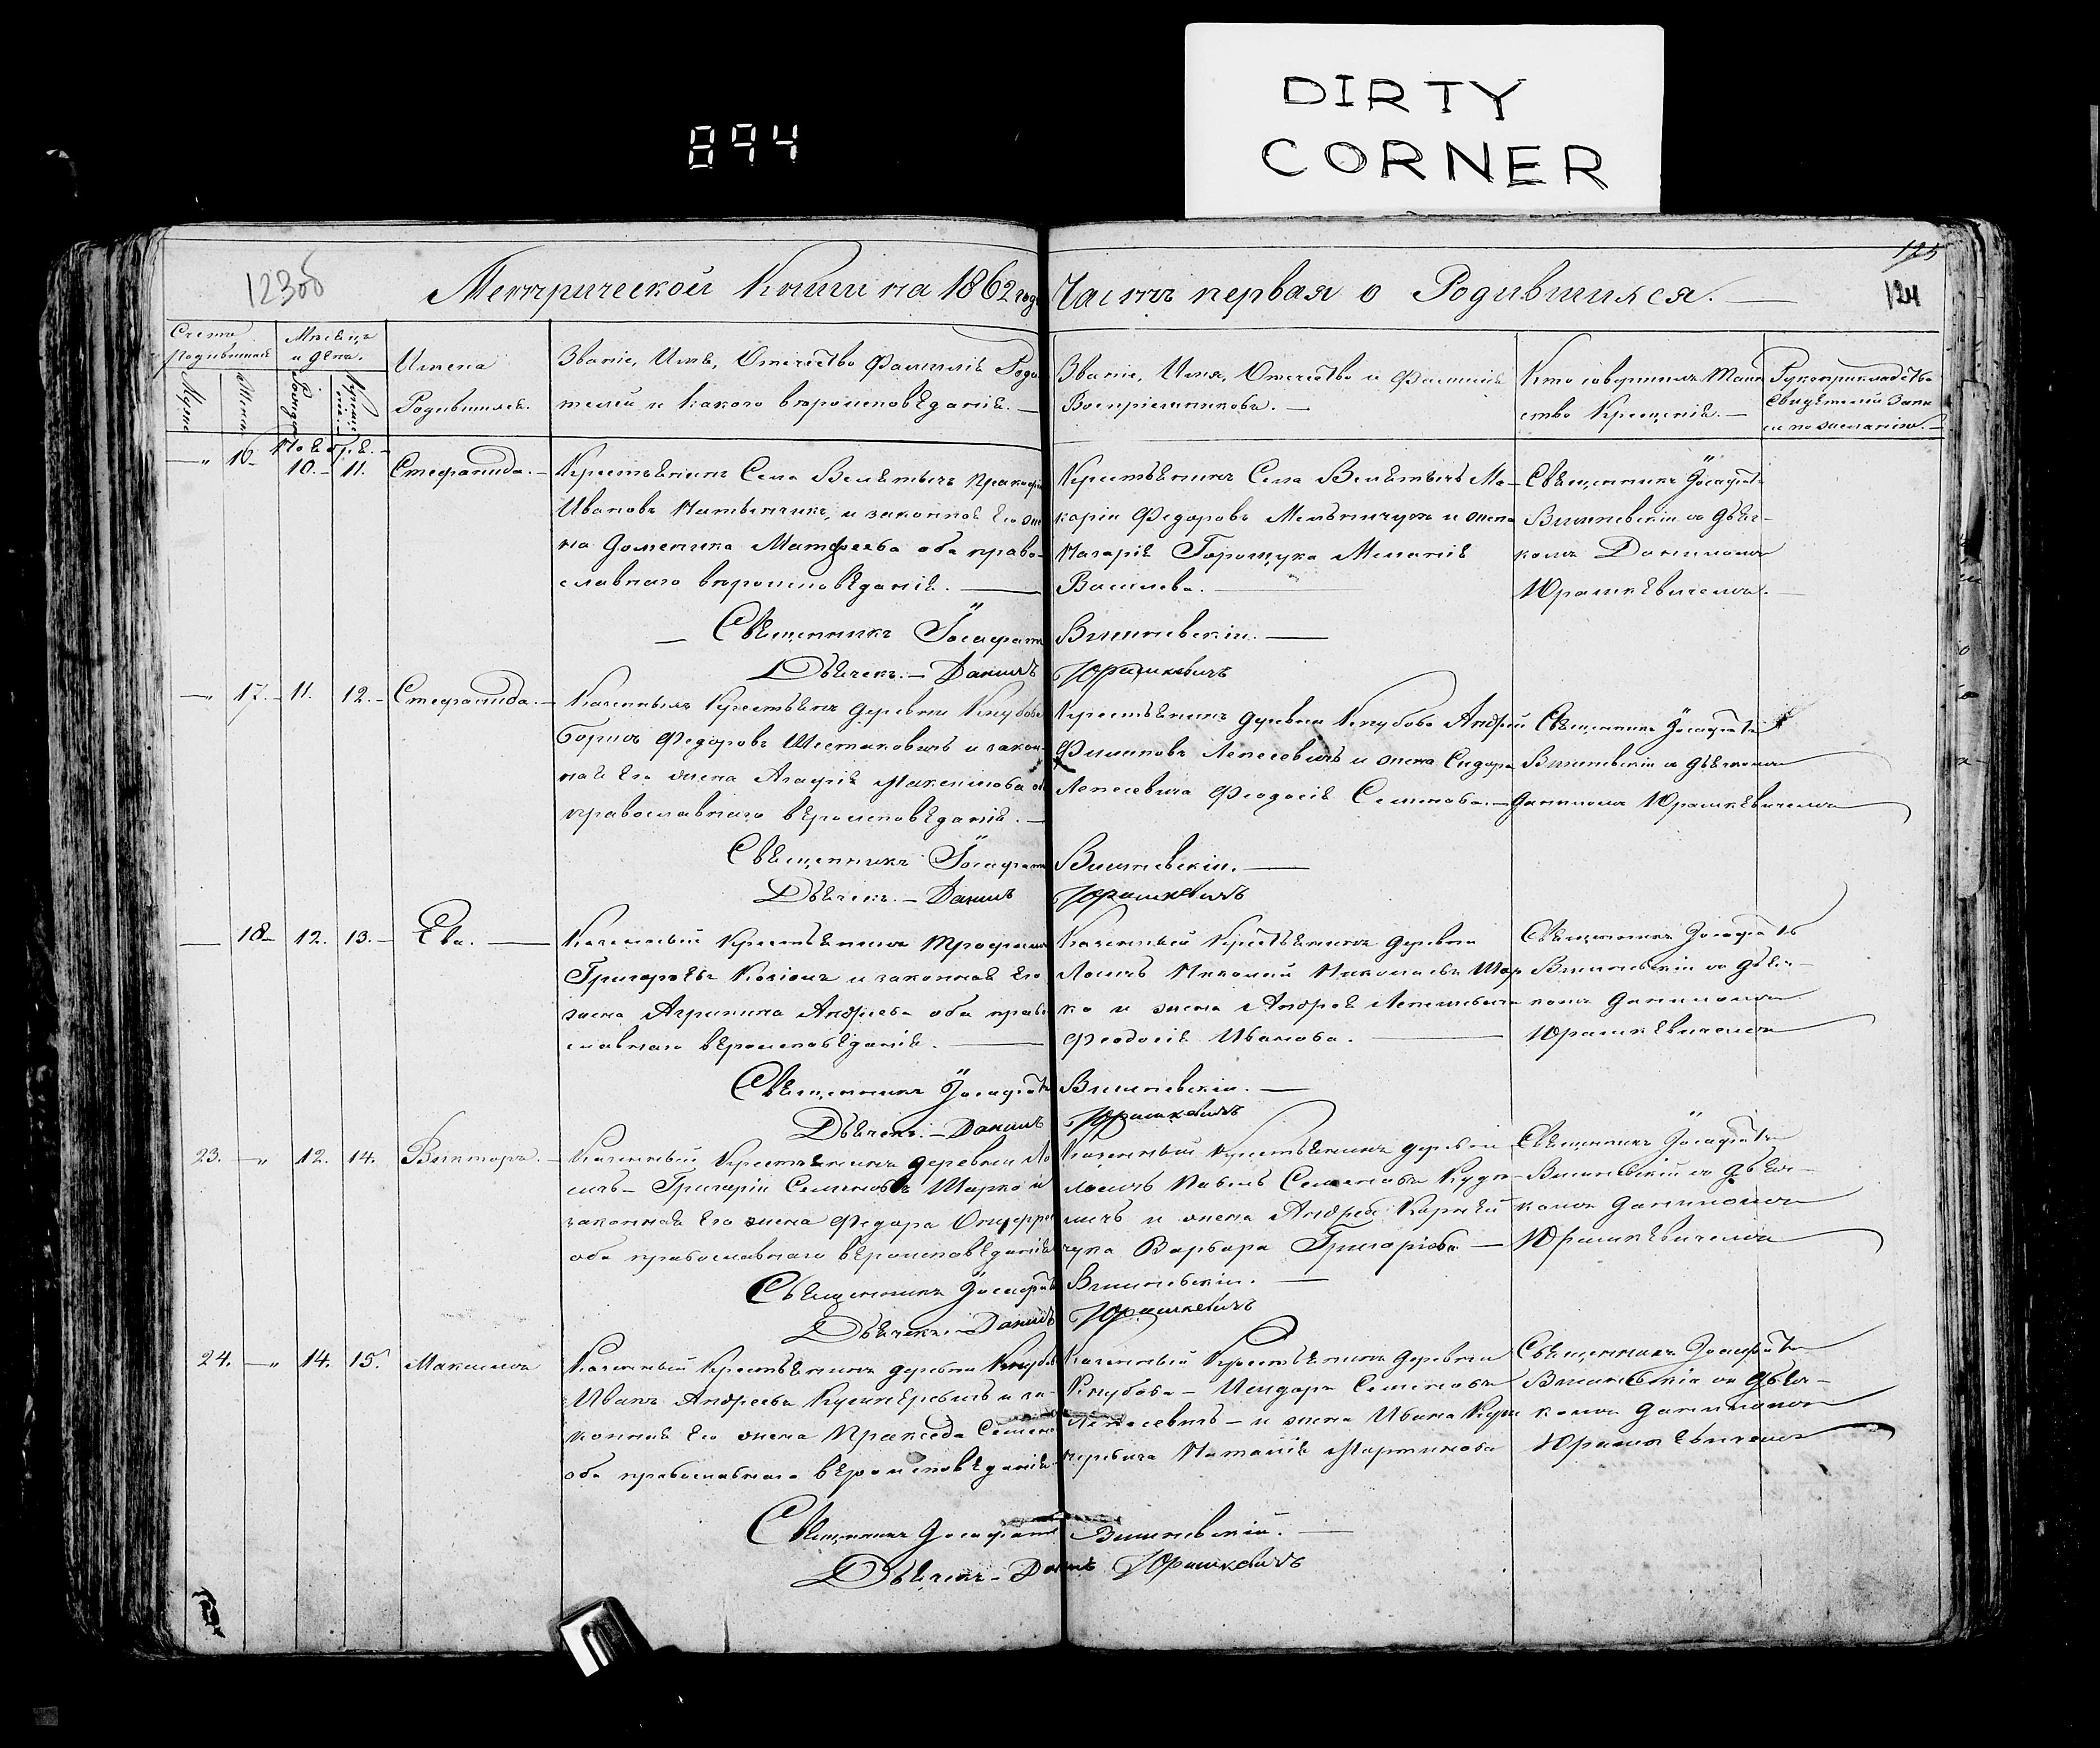 DIRTY
CORNER
894
123об
125
124
Метрической Книги на 1862 года Часть первая о Родившихся.
Счетъ родившихся
Мужеска
Женска
Мѣсяцъ и день.
Рожденія
Крещенія
Имена Родившихся.
Званіе, Имя, Отечество Фамилія Роди
телей и Какого вѣроисповѣданія.
Званіе, Имя, Отечество и Фамилія
Воспріемниковъ.
Кто совершилъ Таин
ство Крещенія.
Рукоприкладство
Свидѣтелей Запи
си по желанію.
Ноября.
— " 16 10. 11. Стефанида.
Крестьянинъ Села
Ивановъ и законная Его же
на Доменика Матфеева оба право
славнаго вѣроисповѣданія.
Крестьянинъ Села Ма
карій Федоровъ Мельничукъ и жена
Назарія Горощука Меланія
Васильева.
Священникъ Іосафатъ
Вишневскій съ Дьяч
комъ Даниломъ
Юрашкевичемъ.
Священникъ Іосафатъ Вишневскій.
Дьячекъ Данилъ Юрашкевичъ
— " 17. 11. 12. Стефанида.
Казенный Крестьянъ деревни Кнубова
Борисъ Федоровъ Шестаковичъ и закон
ная Его жена Агафія Максимова
православнаго вѣроисповѣданія.
Крестьянинъ деревни Кнубова Андрей
Филиповъ Лепесевичъ и жена Сидора
Лепесевича Феодосія Семенова.
Священникъ Іосафатъ
Вишневскій съ дьячкомъ
Даниломъ Юрашкевичемъ
Священникъ Іосафатъ Вишневскій.
Дьячекъ Данилъ Юрашкевичъ
— 18 12. 13. Ева.
Казенный Крестьянинъ Трофимъ
Григорьевъ и законная Его
жена Агрипина Андреева оба право
славнаго вѣроисповѣданія.
Казенный Крестьянинъ деревни
Николай Николаевъ Шар
ко и жена Андрея
Феодосія Иванова.
Священникъ Іосафатъ
Вишневскій съ дьяч
комъ Даниломъ
Юрашкевичемъ
Священникъ Іосафатъ Вишневскій.
Дьячекъ Данилъ Юрашкевичъ
23. — " 12. 14. Викторъ.
Казенный Крестьянинъ деревни Ло
Григорій Семеновъ Шарко и
законная Его жена Федора
оба православнаго вѣроисповѣданія
Казенный Крестьянинъ деревни
Павелъ Семеновъ
и жена Андрея
чука Варвара Григоріева
Священникъ Іосафатъ
Вишневскій съ дьяч
комъ Даниломъ
Юрашкевичемъ
Священникъ Іосафатъ Вишневскій.
Дьячекъ Данилъ Юрашкевичъ
24. — " 14. 15. Максимъ
Казенный Крестьянинъ деревни Кнубова
Иванъ Андреевъ и за
конная Его жена Пракседа Семено
оба православнаго вѣроисповѣданія
Казенный Крестьянинъ деревни
Кнубова Исидоръ Семеновъ
Лепесевичъ и жена Ивана
Наталія Мартинова
Священникъ Іосафатъ
Вишневскій съ дьяч
комъ Даниломъ
Юрашкевичемъ
Священникъ Іосафатъ Вишневскій.
Дьячекъ Данилъ Юрашкевичъ